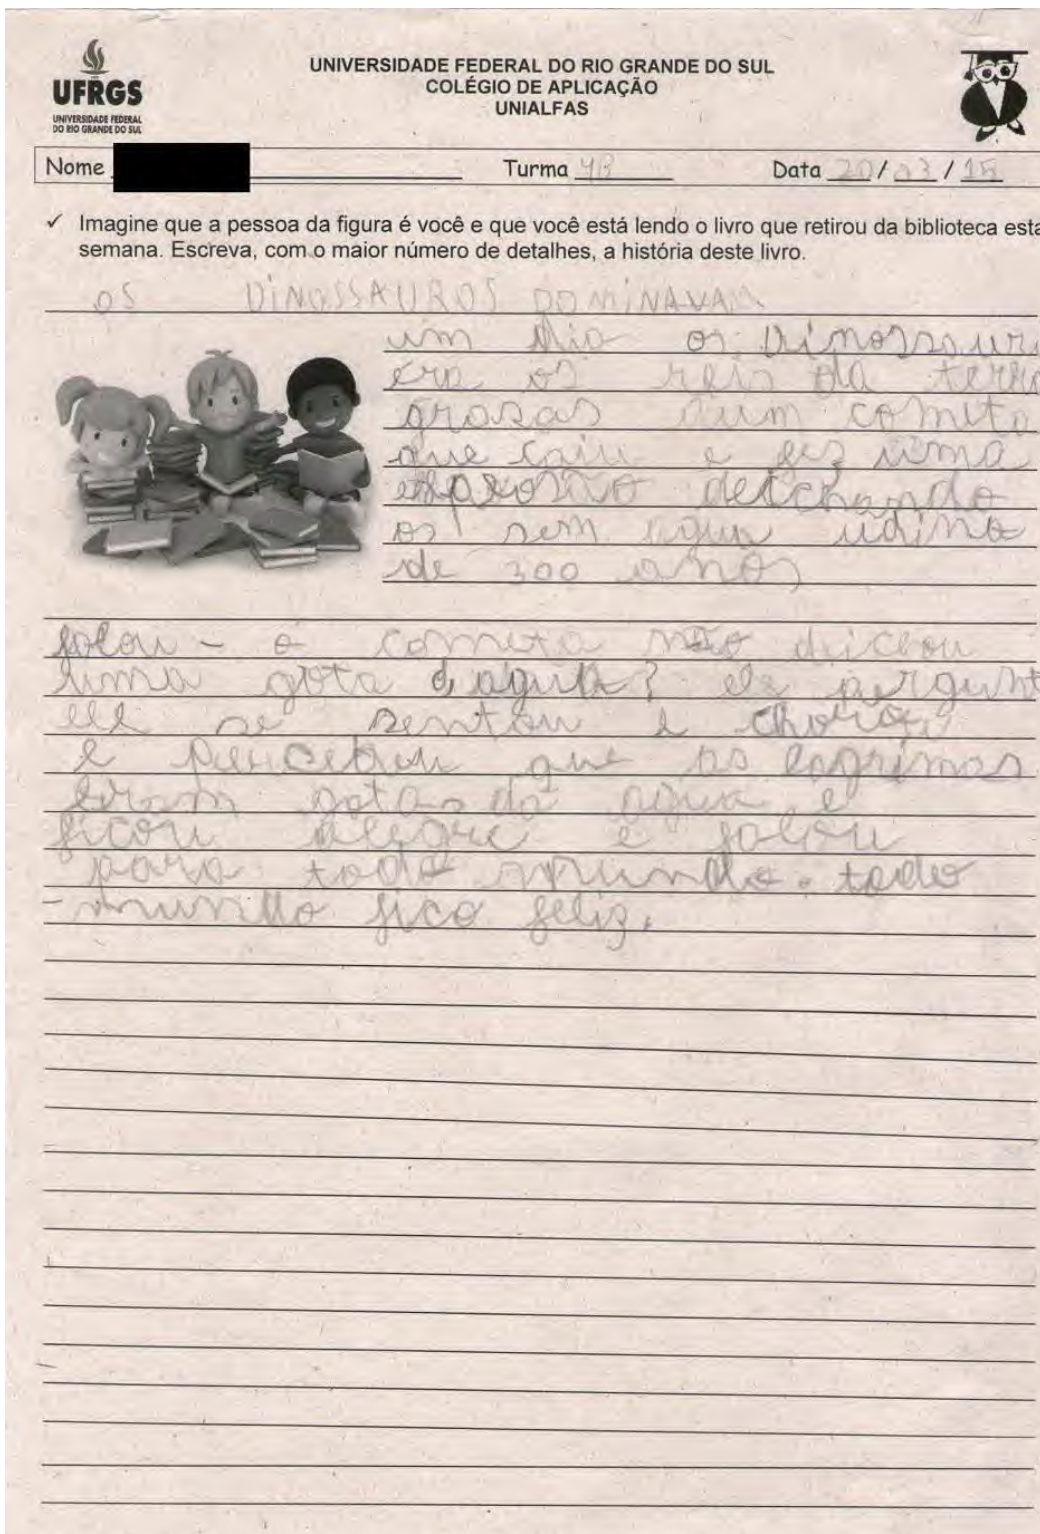 UFRGS
UNIVERSIDADE FEDERAL
DO RIO GRANDE DO SUL
UNIVERSIDADE FEDERAL DO RIO GRANDE DO SUL
COLÉGIO DE APLICAÇÃO
UNIALFAS
Nome
Turma 4B Data 20/03/15
✓ Imagine que a pessoa da figura é você e que você está lendo o livro que retirou da biblioteca esta
semana. Escreva, com o maior número de detalhes, a história deste livro.
OS DINOSSAUROS DOMINAVAM
um dia os dinossauro
era os reis da terra
grasas aum cometa
que caiu e fez uma
deichando
os sem agua
de 300 anos
falou - o cometa não deichou
uma gota d agua? ele pergunt
ele se sentou e chorou
e percebeu que as lagrimas
eram gotas da agua e
ficou alegre e falou
para todo mundo. todo
-mundo fico feliz.